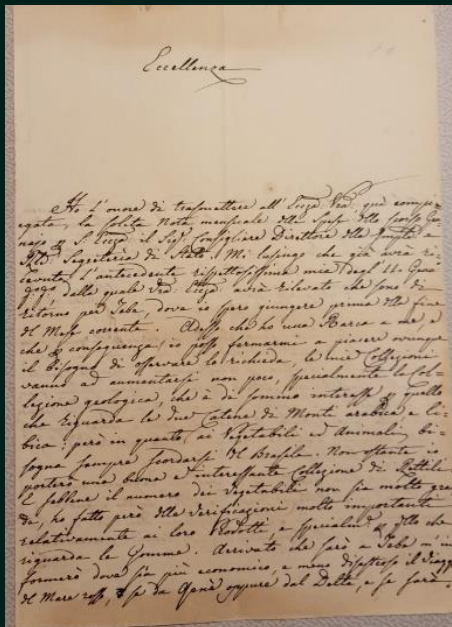 Eccellenza
Ho l'onore di trasmettere all' Ecczа Vra quì compie-
gata, la solita Nota mensuale delle Spese dello scorso Gen-
najo S. Eccza il Sigr Consigliere Direttore della
Segreteria di Stato. Mi lusingo che già avrà ri-
cevuta l'antecedente rispettosissima mia degli 11 Gen-
dalla quale Vra Eccza avrà rilevato che sono di
ritorno per Tebe, dove io spero giungere prima della fine
del Mese corrente. Adesso che ho una Barca a me, e
che conseguenza, io posso fermarmi a piacere ovunque
il bisogno di osservare lo richieda, le mie Collezioni
vanno ad aumentarsi non poco, specialmente la Col-
lezione geologica, che è di sommo interesse quello
che riguarda le due Catene di Monti arabica e li-
bica: però in quanto ai Vegetabili ed Animali, bi-
sogna sempre scordarsi del Brasile. Non ostante io
porterò una buona e interessante Collezione di Rettili.
E sebbene il numero dei Vegetabili non sia molto gran-
de, ho fatto però delle Verificazioni molto importanti
relativamente ai loro Prodotti, e specialmte che
riguarda le Gomme. Arrivato che sarò a Tebe m'in-
formerò dove sia più economico, e meno disastroso il Viaggio
del Mare rosso, se da Qenè oppure dal Delta, e se sarà